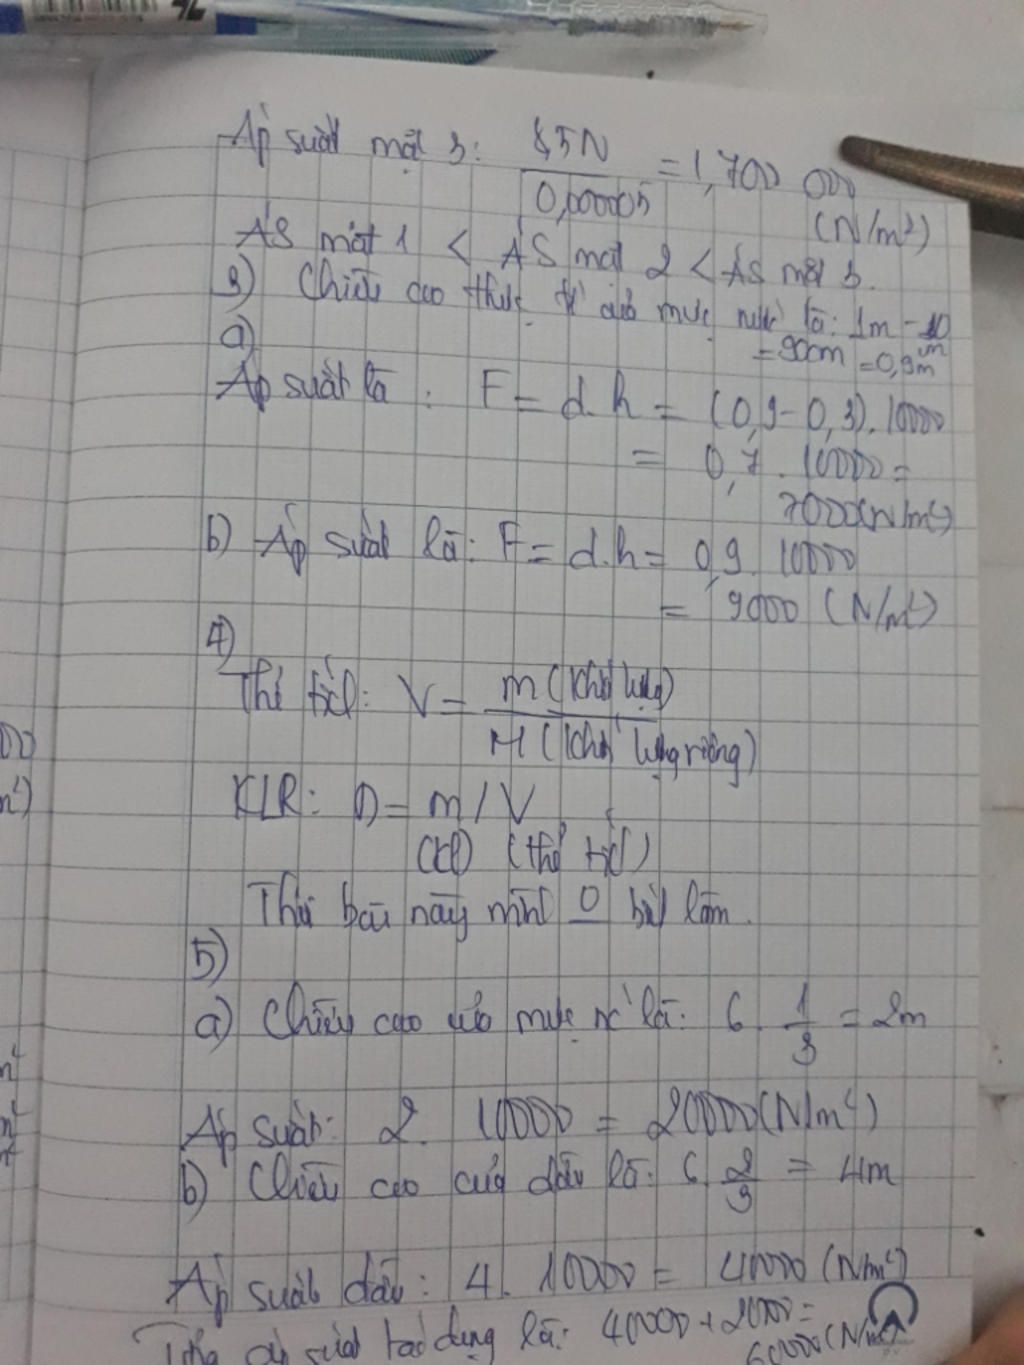 Áp suất mặt 3: 85N / 0,00005 = 1,700 000 (N/m²)
ÁS mặt 1 < ÁS mặt 2 < ÁS mặt 3.
3) Chiều cao thực tế của mực nước là: 1m - 10 cm
= 90cm = 0,9m
a)
Áp suất là: F = d.h = (0,9 - 0,3). 10000
= 0,7 . 10000 =
7000(N/m²)
b) Áp suất là: F = d.h = 0,9. 10000
= 9000 (N/m²)
4)
Thể tích: V = m (khối lượng) / M (khối lượng riêng)
KLR: D = m / V
(KL) (thể tích)
Thưa bài này mình 0 biết làm.
5)
a) Chiều cao của mực nc là: 6. 1/3 = 2m
Áp suất: 2. 10000 = 20000(N/m²)
b) Chiều cao của dầu là: 6. 2/3 = 4m
Áp suất dầu: 4. 10000 = 40000 (N/m²)
Tổng áp suất tác dụng là: 40000 + 2000 =
60000 (N/m²)